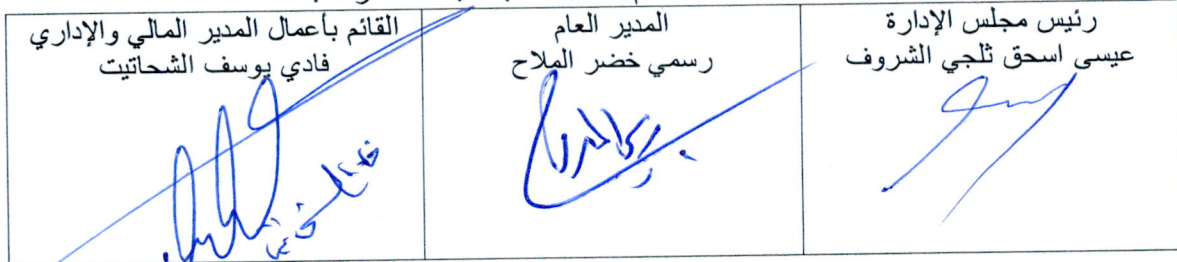 رئيس مجلس الإدارة
عيسى اسحق ثلجي الشروف
المدير العام
رسمي خضر الملاح
القائم بأعمال المدير المالي والإداري
فادي يوسف الشحاتيت